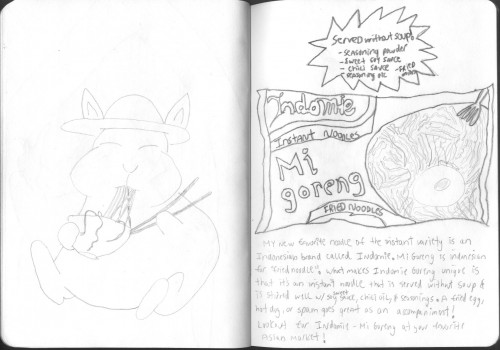 Served without soup!
- seasoning powder
- sweet soy sauce
- chili sauce - fried onion
- seasoning oil
Indomie
Instant Noodles
Mi
goreng
Fried Noodles
My new favorite noodle of the instant variety is an
Indonesian brand called Indomie. Mi Goreng is indonesian
for "fried noodle". What makes Indomie Goreng unique is
that it's an instant noodle that is served without soup &
is stirred well w/ soy sauce, chili oil, & seasonings. A fried egg,
hot dog, or spam goes great as an accompaniment!
Lookout for Indomie - Mi Goreng at your favorite
Asian market!